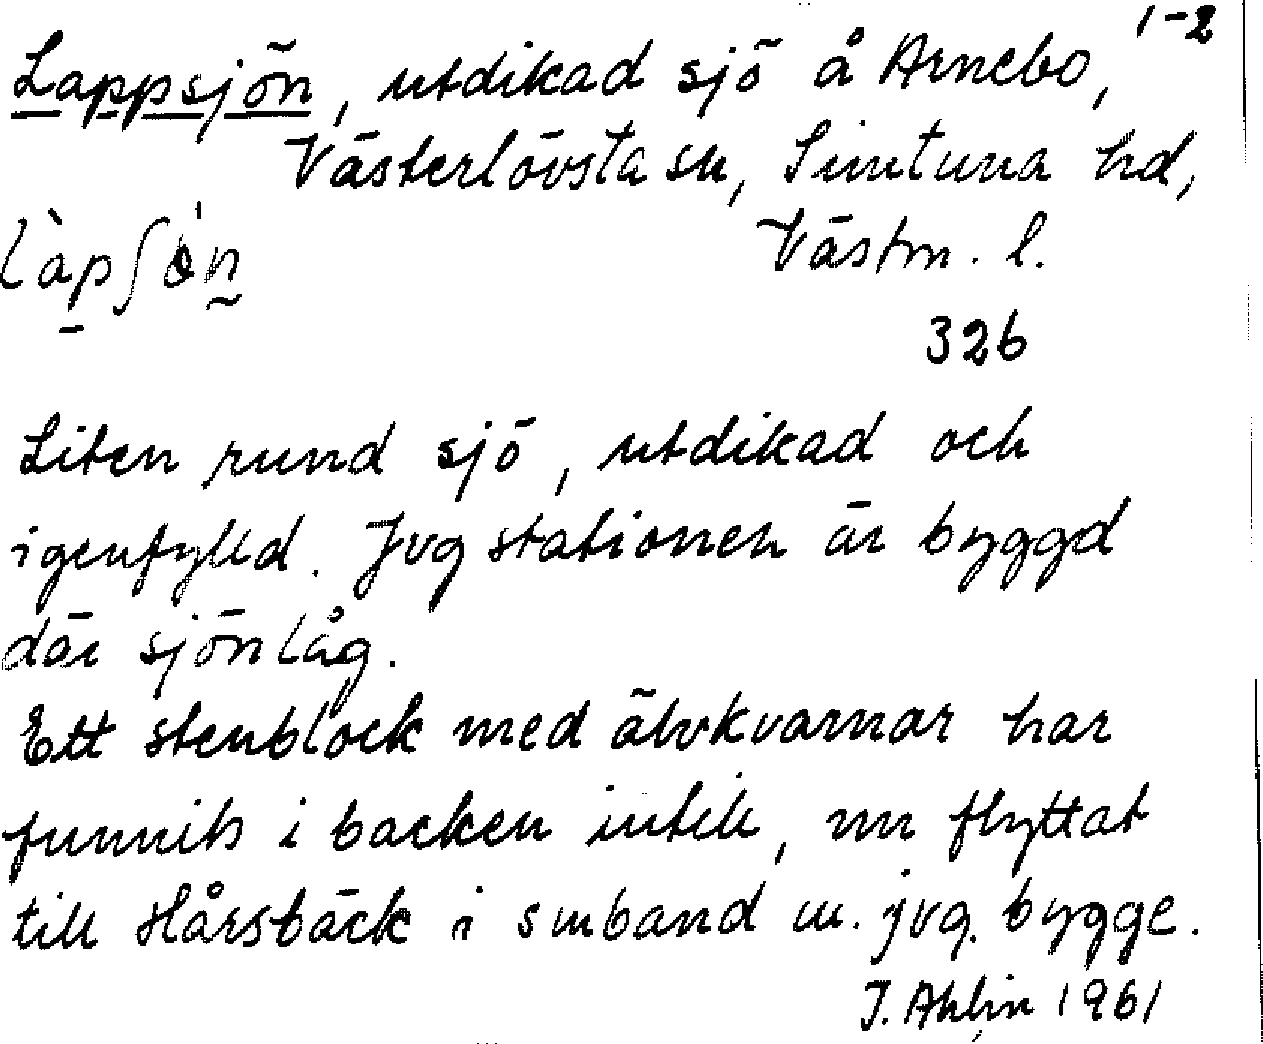 1-2
Lappsjön, utdikad sjö å Arnebo,
Västerlövsta sn, Simtuna hd,
Västm. l.
326
Liten rund sjö, utdikad och
igenfylld. Jvg stationen är byggd
där sjön låg.
Ett stenblock med älvkvarnar har
funnits i backen intill, nu flyttat
till Hårsbäck i smband m. jvg. bygge.
J. Ahlin 1961